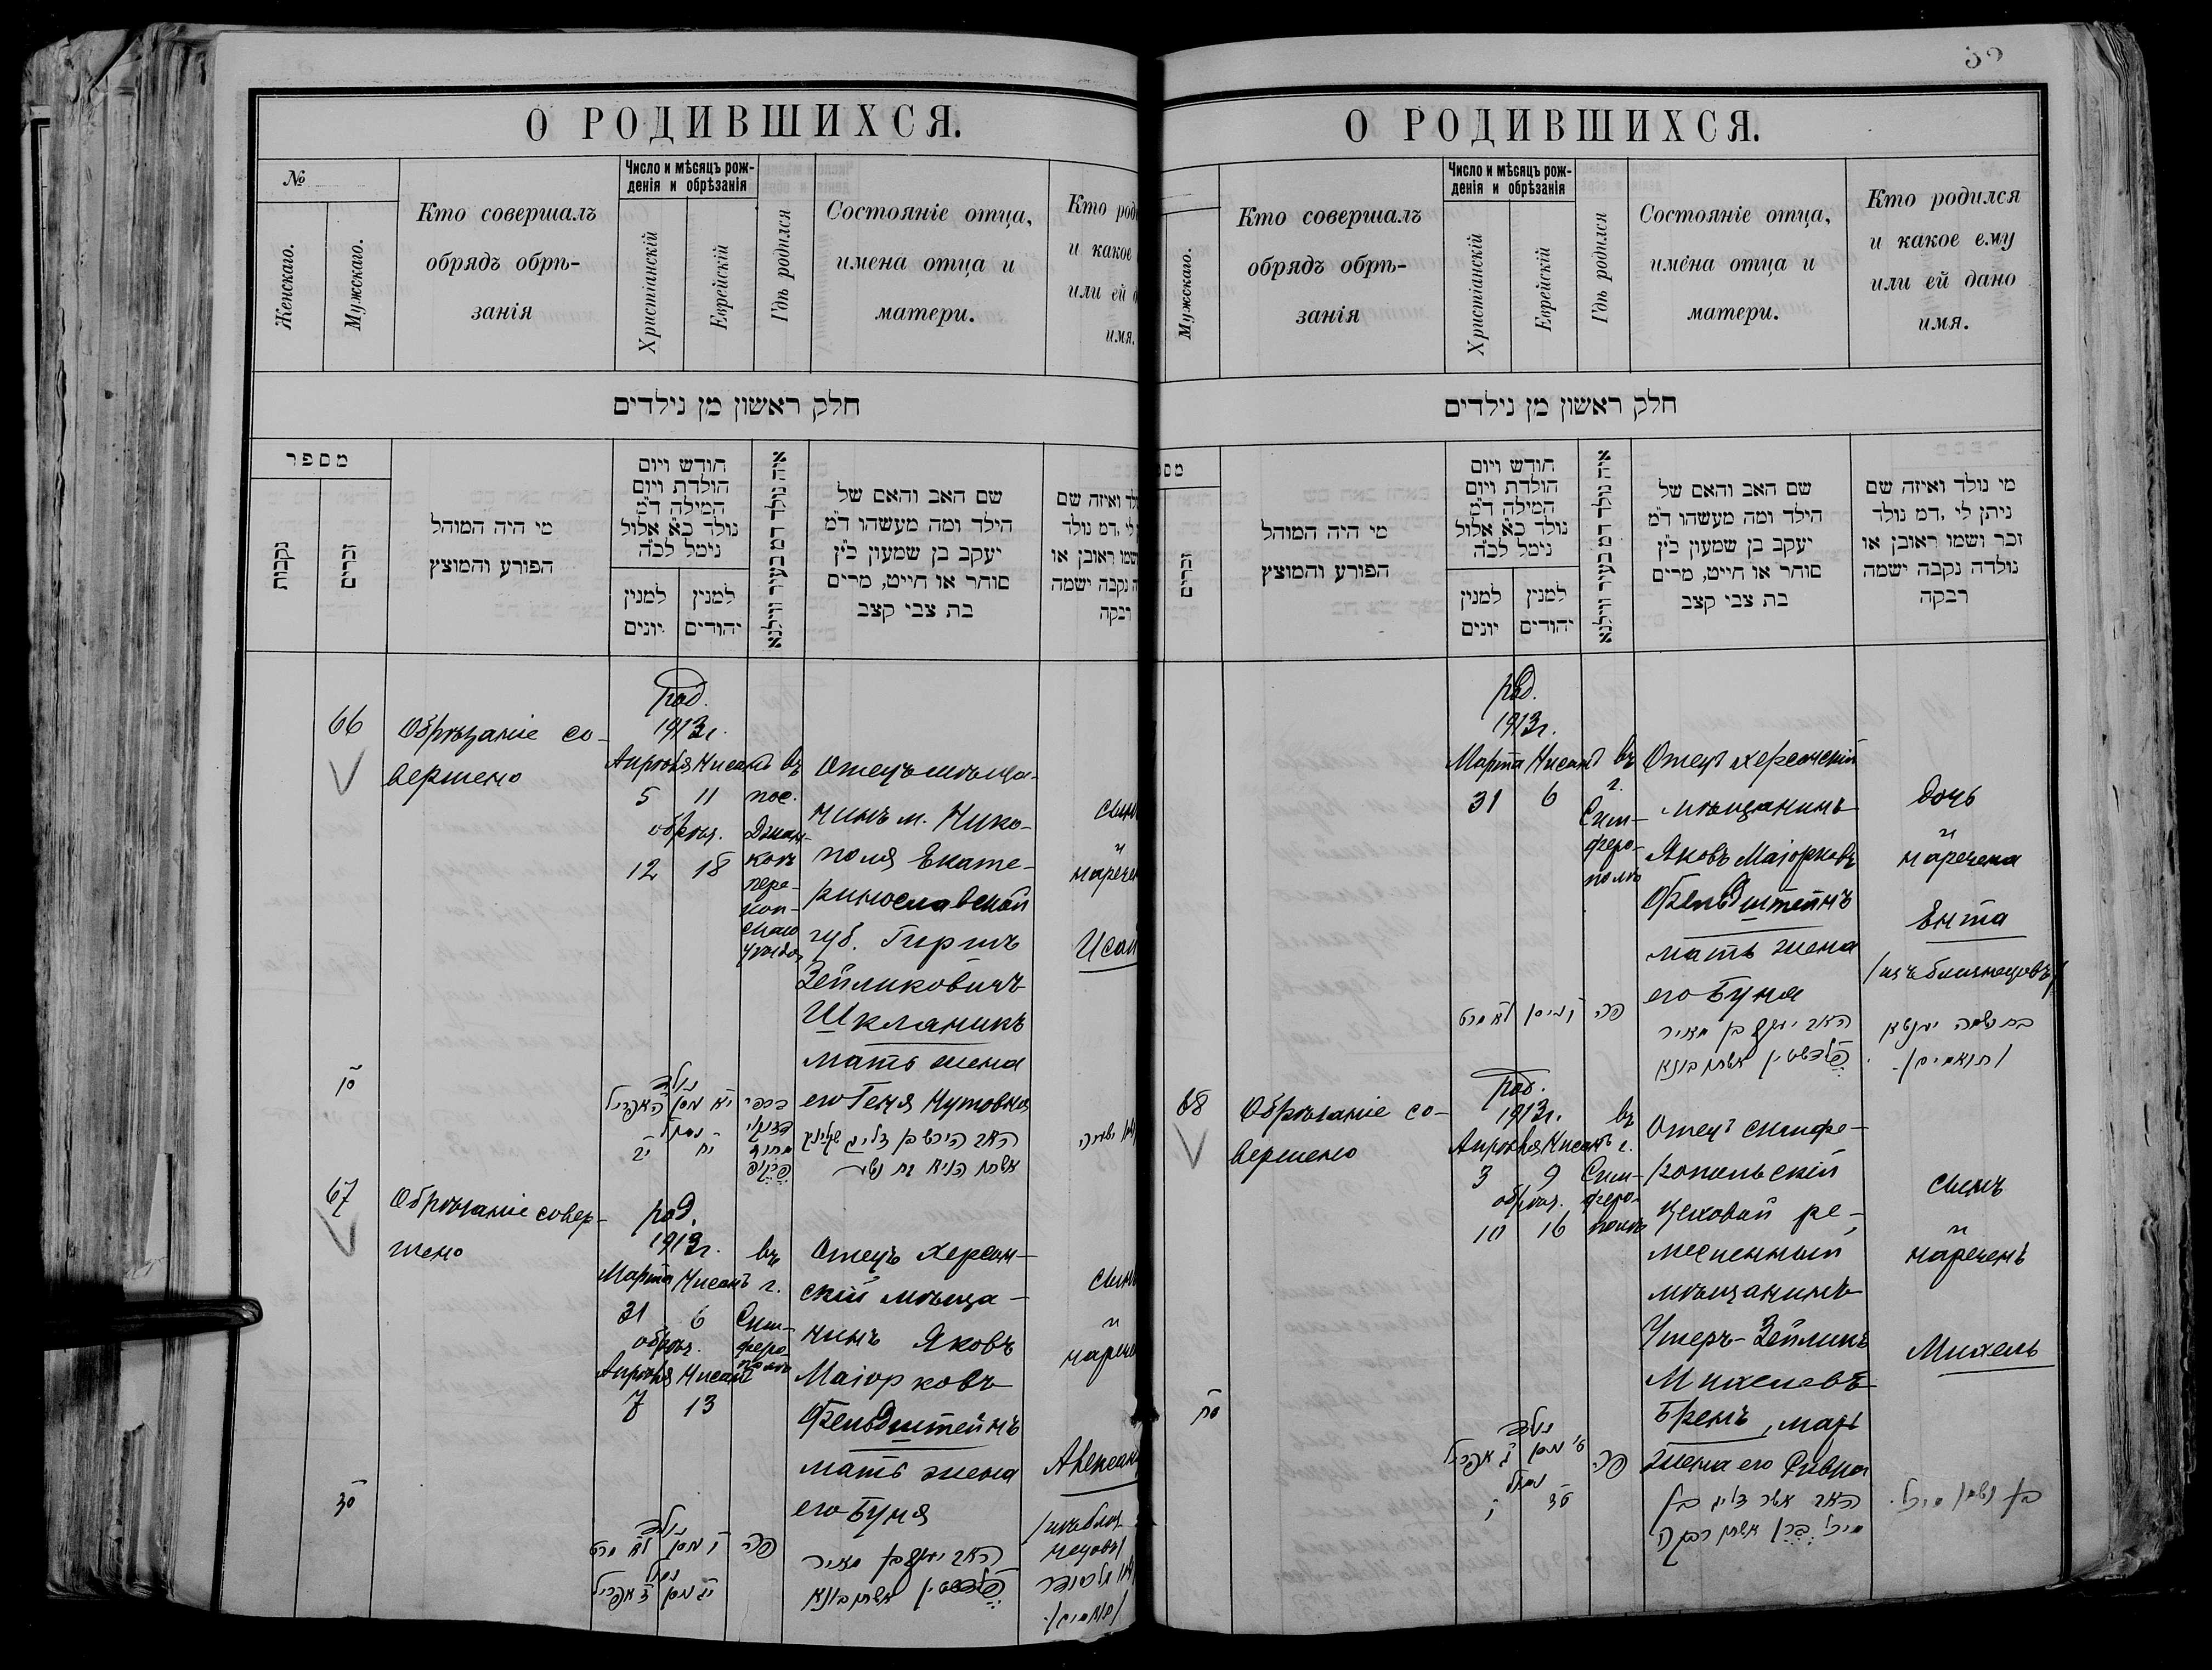 О РОДИВШИХСЯ.
№
Женскаго.
Мужскаго.
Кто совершалъ
обрядъ обрѣ-
занія
Число и мѣсяцъ рож-
денія и обрѣзанія
Христіанскій
Еврейскій
Гдѣ родился
Состояніе отца,
имена отца и
матери.
Кто род
и какое
или ей д
имя.
חלק ראשון מן נילדים
מספר
נקבות
זכרים
מי היה המוהל
הפורע והמוצץ
חודש ויום
הולדת ויום
המילה ד״מ
נולד כ״א אלול
נימל לכ״ה
למנין
יונים
למנין
יהודים
איה נולד דמ בעיר ווילנא
שם האב והאם של
הילד ומה מעשהו ד״מ
יעקב בן שמעון כ״ץ
סוחר או חייט, מרים
בת צבי קצב
לד ואיזה שם
לי, דמ נולד
שמו ראובן או
ה נקבה ישמה
רבקה
66
Обрѣзаніе со-
вершено
род.
1913 г.
Апрѣля Нисанъ
5 11
обрѣз.
12 18
въ
пос.
Джан-
кой
пере-
коп-
скаго
уѣзда
Отецъ мѣща-
нинъ м. Нико-
поля Екате-
ринославской
губ. Гиршъ
Зейликовичъ
Шкляникъ
мать жена
его Геня Нутовна
сын
и
наречен
Исай
נולד
יא ניסן ה אפריל
נמול
יח יב
האב הירש בן זליג שקליניק
67
Обрѣзаніе совер-
шено
род.
1913 г.
Марта Нисанъ
31 6
обрѣз.
Апрѣля Нисанъ
7 13
въ
г.
Сим-
феро-
полѣ
Отецъ херсон-
скій мѣща-
нинъ Яковъ
Маіорковъ
Фельдштейнъ
мать жена
его Буня
сынъ
и
нарече
Александ
/изъ близ-
нецовъ/
נולד
ו ניסן לא מרט
נמול
יג ניסן ז אפריל
פה
האב יעקב בן מאיר
פעלדשטיין אשתו בוניא
/תאמים/
52
О РОДИВШИХСЯ.
Мужскаго.
Кто совершалъ
обрядъ обрѣ-
занія
Число и мѣсяцъ рож-
денія и обрѣзанія
Христіанскій
Еврейскій
Гдѣ родился
Состояніе отца,
имена отца и
матери.
Кто родился
и какое ему
или ей дано
имя.
חלק ראשון מן נילדים
מס
זכרים
מי היה המוהל
הפורע והמוצץ
חודש ויום
הולדת ויום
המילה ד״מ
נולד כ״א אלול
נימל לכ״ה
למנין
יונים
למנין
יהודים
איה נולד דמ בעיר ווילנא
שם האב והאם של
הילד ומה מעשהו ד״מ
יעקב בן שמעון כ״ץ
סוחר או חייט, מרים
בת צבי קצב
מי נולד ואיזה שם
ניתן לי, דמ נולד
זכר ושמו ראובן או
נולדה נקבה ישמה
רבקה
род.
1913 г.
Марта Нисанъ
31 6
въ
г.
Сим-
феро-
полѣ
Отецъ херсонскій
мѣщанинъ
Яковъ Маіорковъ
Фельдштейнъ
мать жена
его Буня
дочь
и
наречена
Ента
/изъ близнецовъ/
ו ניסן לא מרט
פה
האב יעקב בן מאיר
פעלדשטיין אשתו בוניא
בת ושמה יענטא
/תואמים/.
68
Обрѣзаніе со-
вершено
род.
1913 г.
Апрѣля Нисанъ
3 9
обрѣз.
10 16
въ
г.
Сим-
феро-
полѣ
Отецъ симфе-
ропольскій
цеховой ре-
месленный
мѣщанинъ
Ушеръ-Зейликъ
Михелевъ
Бренъ, мать
жена его Ривка
сынъ
и
нареченъ
Михель
סח
נולד
ט ניסן ג אפריל
נמול
טז י
פה
האב אשר זליג בן
מיכל ברן אשתו רבקה
בן ושמו מיכל.